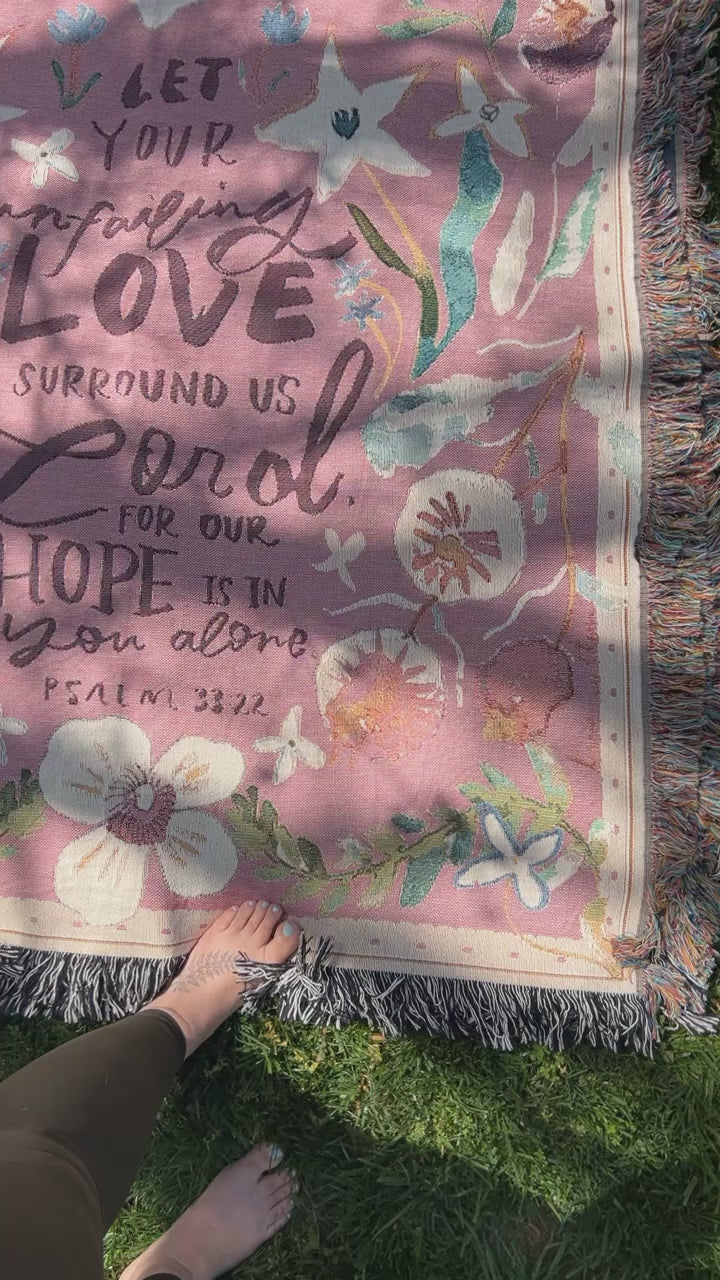 LET
YOUR
unfailing
LOVE
SURROUND US
Lord,
FOR OUR
HOPE IS IN
you alone.
PSALM 33:22